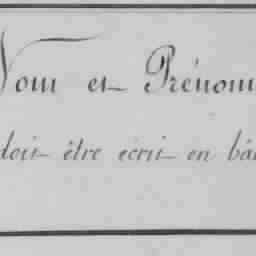 Nom et Prénom
doit être écrit en bâ